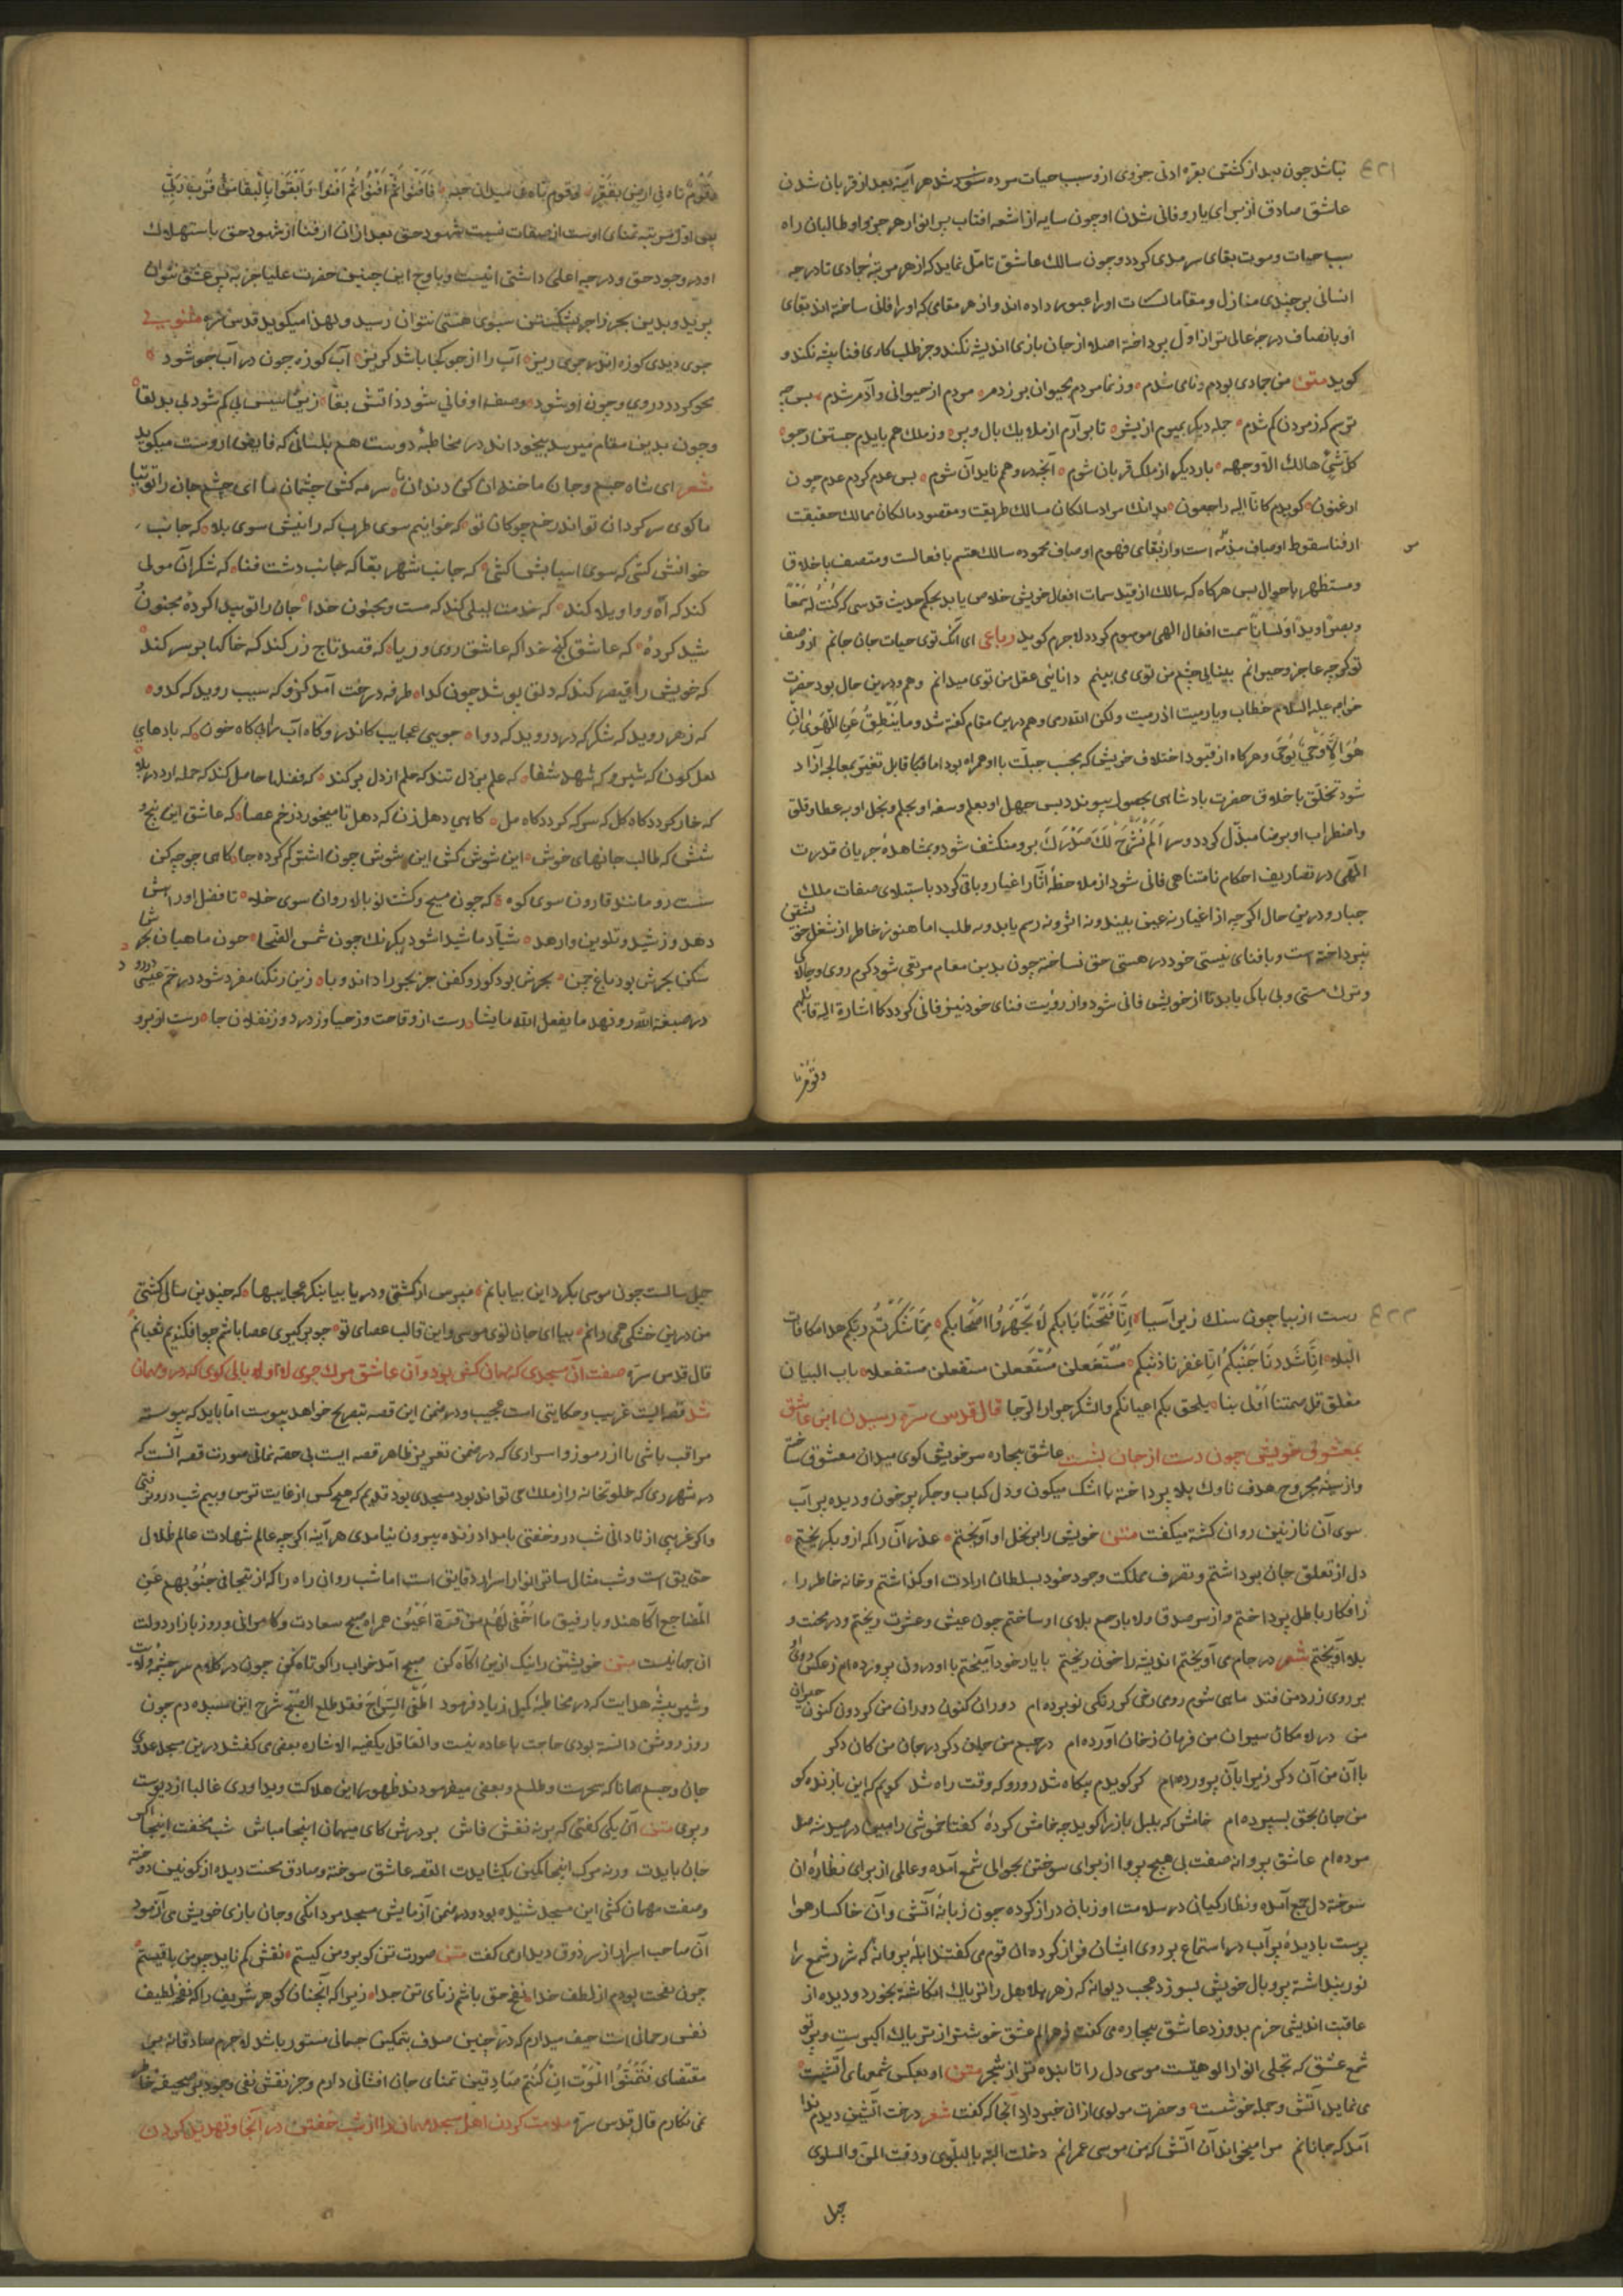 نباشد چون بعد از کشتن بقره ادنی جزوی از و سبب حیات مرده شد هر آینه بعد از قربان شدن
عاشق صادق از برای یار و فانی شدن او چون سایه از اشعه افتاب پر انوار هر جزو او طالبان راه
سبب حیات و موت بقای سرمدی کردد و چون سالک عاشق تامل نماید که از هر مرتبهٔ جمادی تا درجه
انسانی بر چندی منازل و مقامات اورا عبور داده اند و از هر مقامی که اورا فانی ساخته اند بقای
او بانصاف درجهٔ عالی تر از اول پرداخته اصلا از جان بازی اندیشه نکند و جز طلب کاری فنا پیشه نکند و
کوید متن من جمادی بودم و نامی شدم وز نما مردم بحیوان بر زدم مردم از حیوانی و آدم شدم پس چه
ترسم که ز مردن کم شدم جمله دیکر بمیرم از بشر تا بر آرم از ملایک بال و پر وز ملک هم بایدم جستن ز جو
کل شیٔ هالک الا وجهه بار دیکر از ملک قربان شوم آنچه در وهم ناید آن شوم پس عدم کردم عدم چون
ارغنون کویدم کانا الیه راجعون بدانک مراد سالکان مسالک طریقت و مقصود مالکان ممالک حقیقت
از فنا سقوط اوصاف مذمه است و از بقای فهوم اوصاف محموده سالک هشتم بافعالست و متصف باخلاق
و مستظهر باحوال پس هرکاه که سالک از قید سمات افعال خویش خلاص یابد بحکم حدیث قدسی که کنت له سمعا
و بصرا و یدا و لسانا بسمت افعال الهی موسوم کردد لاجرم کوید رباعی ای آنک توی حیات جان جانم از وصف
تو کرچه عاجز و حیرانم بینایی چشم من توی می بینم دانایی عقل من توی میدانم و هم در این حال بود حضرت
خواجه علیه السلام خطاب و ما رمیت اذ رمیت و لکن الله رمی و هم درین مقام کفته شد و ما ینطق عن الهوی ان
هو الا وحی یوحی و هرکاه از قیود اختلاف خویش که بحسب جبلت با او همراه بود اما قابل تغییر بمعالجه آزاد
شود تخلق باخلاق حضرت پادشاهی بحصول پیوندد پس جهل او بعلم و سفه او بحلم و بخل او بعطا و قلق
و اضطراب او برضا مبدل کردد و سر الم نشرح لک صدرک برو منکشف شود و بمشاهدهٔ جریان قدرت
الهی در تصاریف احکام نامتناهی فانی شود از ملاحظهٔ آثار اغیار و باقی کردد باستیلای صفات ملک
جبار و درین حال اکرچه از اغیار نه عین بیند و نه اثر و نه رسم یابد و نه طلب اما هنوز خاطر از شغل خویشتن
نپرداخته است و با فنای نیستی خود در هستی حق نساخته چون بدین مقام مرتقی شود کرم روی و چالاکی
و ترک مستی و بی باکی یابد تا از خویش فانی شود و از رؤیت فنای خود نیز فانی کردد کما اشارة الیه قایلهم
وقوم
وقوم تاه فی ارض بقفر و قوم تاه فی میدان حبه فافنوا ثم افنوا ثم افنوا و ابقوا بالبقا من قرب ربه
یعنی اول مرتبه تمنای اوست از صفات نسبت شهود حق بعد از آن از فنا از شهود حق باستهلاک
او در وجود حق و درجهٔ اعلی داشتی انیست و باوج این چنین حضرت علیا جز بپر عشق نتوان
پرید و بدین بحر زاخر بشکستن سبوی هستی نتوان رسید و لهذا میکوید قدس سره مثنوی
جوی دیدی کوزه اندر جوی ریز آب را از جو کجا باشد کریز آب کوزه چون در آب جو شود
محو کردد در وی و چون او شود وصف او فانی شود ذاتش بقا زین سپس نی کم شود نی بد لقا
و چون بدین مقام میرسد بیخود اند در مخاطبهٔ دوست هم بلسانی که فایض از وست میکوید
شعر ای شاه جسم و جان ما خندان کن دندان ما سرمه کش چشمان ما ای چشم جان را توتیا
ما کوی سرکردان تو اندر خم چوکان تو که خوانیم سوی طرب که رانیش سوی بلا که جانب
خوابش کشی که سوی اسبابش کشی که جانب شهر بقا که جانب دشت فنا که شکر آن مولی
کند که آه و واویلا کند که خدمت لیلی کند که مست و مجنون خدا جان را تو پیدا کرده مجنون
شیدا کرده که عاشق کنج خدا که عاشق روی و ریا که قصد تاج زر کند که خاکها بر سر کند
که خویش را قیصر کند که دلق پوشد چون کدا طرفه درخت آمد کزو که سیب روید که کدو
که زهر روید که شکر که درد روید که دوا جویی عجایب کاندرو کاه آب رانی کاه خون که بادهای
لعل کون که شیر و که شهد شفا که علم بر دل تند که علم از دل بر کند که فضلها حاصل کند که جمله ارد در بلا
که خار کردد کاه کل که سرکه کردد کاه مل کاهی دهل زن که دهل تا میخورد زخم عصا که عاشق این پنج و
شش که طالب جانهای خوش این شوش کش این شوش چون اشتر کم کرده جا کاهی چو چه کن
پست رو مانند قارون سوی کو که چون مسیح و کشت نو بالا روان سوی خلا تا فضل او راهش
دهد وز شید و تلوین وارهد شیاد ما شیدا شود یکرنک چون شمس الضحی چون ماهیان بحرش
سکن بحرش بود باغ چمن بحرش بود کور و کفن جز بحر را داند وبا زین رنکها مفرد شود در خم عیسی
در صبغة الله رو نهد ما یفعل الله ما یشا رست از وقاحت وز حیا وز درد وز نقلان جا رست از برو
۴۲۲ رست از بیا چون سنک زیر آسیا انا فتحنا بابکم لا تهجروا اصحابکم بما شکرتم ربکم هذا مکافات
البلا انا شددنا جنبکم انا غفرنا ذنبکم مستفعلن مستفعلن مستفعلن مستفعلا باب البیان
مغلق قل صمتنا اولی بنا یلحق بکم اعیانکم و الشکر جرار الرجا قال قدس سره رسیدن این عاشق
بمعشوق خویش چون دست از جان بشست عاشق بیچاره سر خویش کوی میدان معشوق ساخته
و از سینهٔ مجروح هدف ناوک بلا پرداخته با اشک میکون و دل کباب و جکر پر خون و دیده پر آب
سوی آن نازنین روان کشته میکفت متن خویش را بر نخل او آویختم عذر آن را که ازو بکریختم
دل از تعلق جان برداشتم و تصرف مملکت وجود خود بسلطان ارادت او کذاشتم و خانه خاطر را
ز افکار باطل پرداختم و از سر صدق و لا با درد مع بلای او ساختم چون عیش و عشرت ریختم و در محنت و
بلا آویختم شعر در جام می آویختم اندیشه را خون ریختم با یار خود آمیختم با او درون پرده ام ز عکس روی
بر روی زرد من فتد ماهی شوم رومی رخی کر زنکی نو برده ام دوران کنون دوران من کردون کنون حیران
من در لامکان سیران من فرمان ز خان آورده ام در جسم من جان دکر در جان من کان دکر
با آن من آن دکر زیرا بآن پی برده ام کر کویدم بیکاه شد رو رو که وقت راه شد کویم که این با زنده کو
من جان بحق بسپرده ام خامش که بلبل باز را کوید چه خامش کردهٔ کفتا خموشی را مبین در صید شه صد
مرده ام عاشق پروانه صفت بی هیچ پروا از برای سوختن بحوالی شمع آمده و عالمی از برای نظارهٔ آن
سوخته دل جمع آمده و نظار کیانی در سلامت او زبان دراز کرده چون زبانهٔ آتش و آن خاکسار هوا
پرست با دیدهٔ پر آب در استماع بر روی ایشان فراز کرده آن قوم می کفتند ابله پروانه که شرر شمع را
نور پنداشته پر و بال خویش بسوزد عجب دیوانه که زهر هلاهل را تریاک انکاشته بخورد و دیده از
عاقبت اندیشی حزم بدوزد عاشق بیچاره می کفت زهر الم عشق خوشتر از تریاک اکبرست و پرتو
شمع عشق که تجلی انوار الوهیت موسی دل را تابنده تر از شجر متن او بعکس شمعهای آتشیست
می نماید آتش و جمله خوشیست و حضرت مولوی از ان خبر داد آنجا که کفت شعر درخت آتشین دیدم ندا
آمد که جانانم مرا میخواند آن آتش که من موسی عمرانم دخلت التیه بالبلوی و ذقت المن و السلوی
چل
چل سالست چون موسی بکرد این بیابانم مپرس از کشتی و دریا بیا بنکر عجایبها که چندین سال کشتی
من درین خشکی همی رانم بیا ای جان توی موسی واین قالب عصای تو چو بر کیری عصا باشم چو افکندیم ثعبانم
قال قدس سره صفت آن مسجدی که مهمان کش بود و آن عاشق مرک جوی لا ابالی کوی که درو مهمان
شد قصایست غریب و حکایتی است عجیب و در ضمن این قصه تبصریح خواهد پیوست اما باید که پیوسته
مراقب باشی با از رموز و اسراری که در ضمن تعریز ظاهر قصه ایست بی حصه نمانی صورت قصه آنست که
در شهر ری که خلوتخانه راز ملک می تواند بود مسجدی بود قدیم که هیچ کس از غایت ترس و بیم شب در و نرفتی
و اکر غریبی از نادانی شب در و خفتی بامداد زنده بیرون نیامدی هر آینه اکرچه عالم شهادت عالم ظلال
حقایق است و شب مثال ساتر انوار اسرار دقایق است اما شب روان راه را که از تتجافی جنوبهم عن
المضاجع آکاهند و با رفیق ما اخفی لهم من قرة اعین همراه صبح سعادت و کامرانی و روز بازار دولت
آن جهانیست متن خویشتن را نیک ازین آکاه کن صبح آمد خواب را کوتاه کن چون در کلام سرچشمهٔ ولایت
و شیر بیشهٔ هدایت که در مخاطبهٔ کمیل زیاد فرمود اطفی السراج فقد طلع الصبح شرح این سپیده دم چون
روز روشن دانسته بودی حاجت باعاده نیست و العاقل یکفیه الاشاره بعضی می کفتند درین مسجد عدوی
جان و جسم همانا که سحرست و طلسم و بعضی میفرمودند ظهور این هلاکت و بیداوری غالبا از دیوست
و پری متن آن یکی کفتی که بر نه نقش فاش بر درش کای میهمان اینجا مباش شب مخسب اینجا اکر
جان بایدت ورنه مرک اینجا کمین بکشایدت القصه عاشق سوخته و صادق بمحنت دیده از کونین دوخته
وصفت مهمان کشی این مسجد شنیده بود و در ضمن آزمایش مسجد مردانکی و جان بازی خویش می آزمود
آن صاحب اسرار از سر ذوق دیداری کفت متن صورت تن کو برو من کیستم نقش کم ناید چو من باقیستم
چون نفخت بودم از لطف خدا نفخ حق باشم ز نای تن جدا زیرا که آنچنان کوهر شریف را که نفخ لطیف
نفس رحمانی است حیف میدارم که در چنین صدف بتمکین جسمانی مستور باشد لاجرم صادقانه بی
مقتضای فتمنوا الموت ان کنتم صادقین تمنای جان افشانی دارم و جز نقش نفی وجود بر صحیفهٔ خاطر
نمی نکارم قال قدس سره ملامت کردن اهل مسجد مهمان را از شب خفتن در آنجا و تهدید کردن